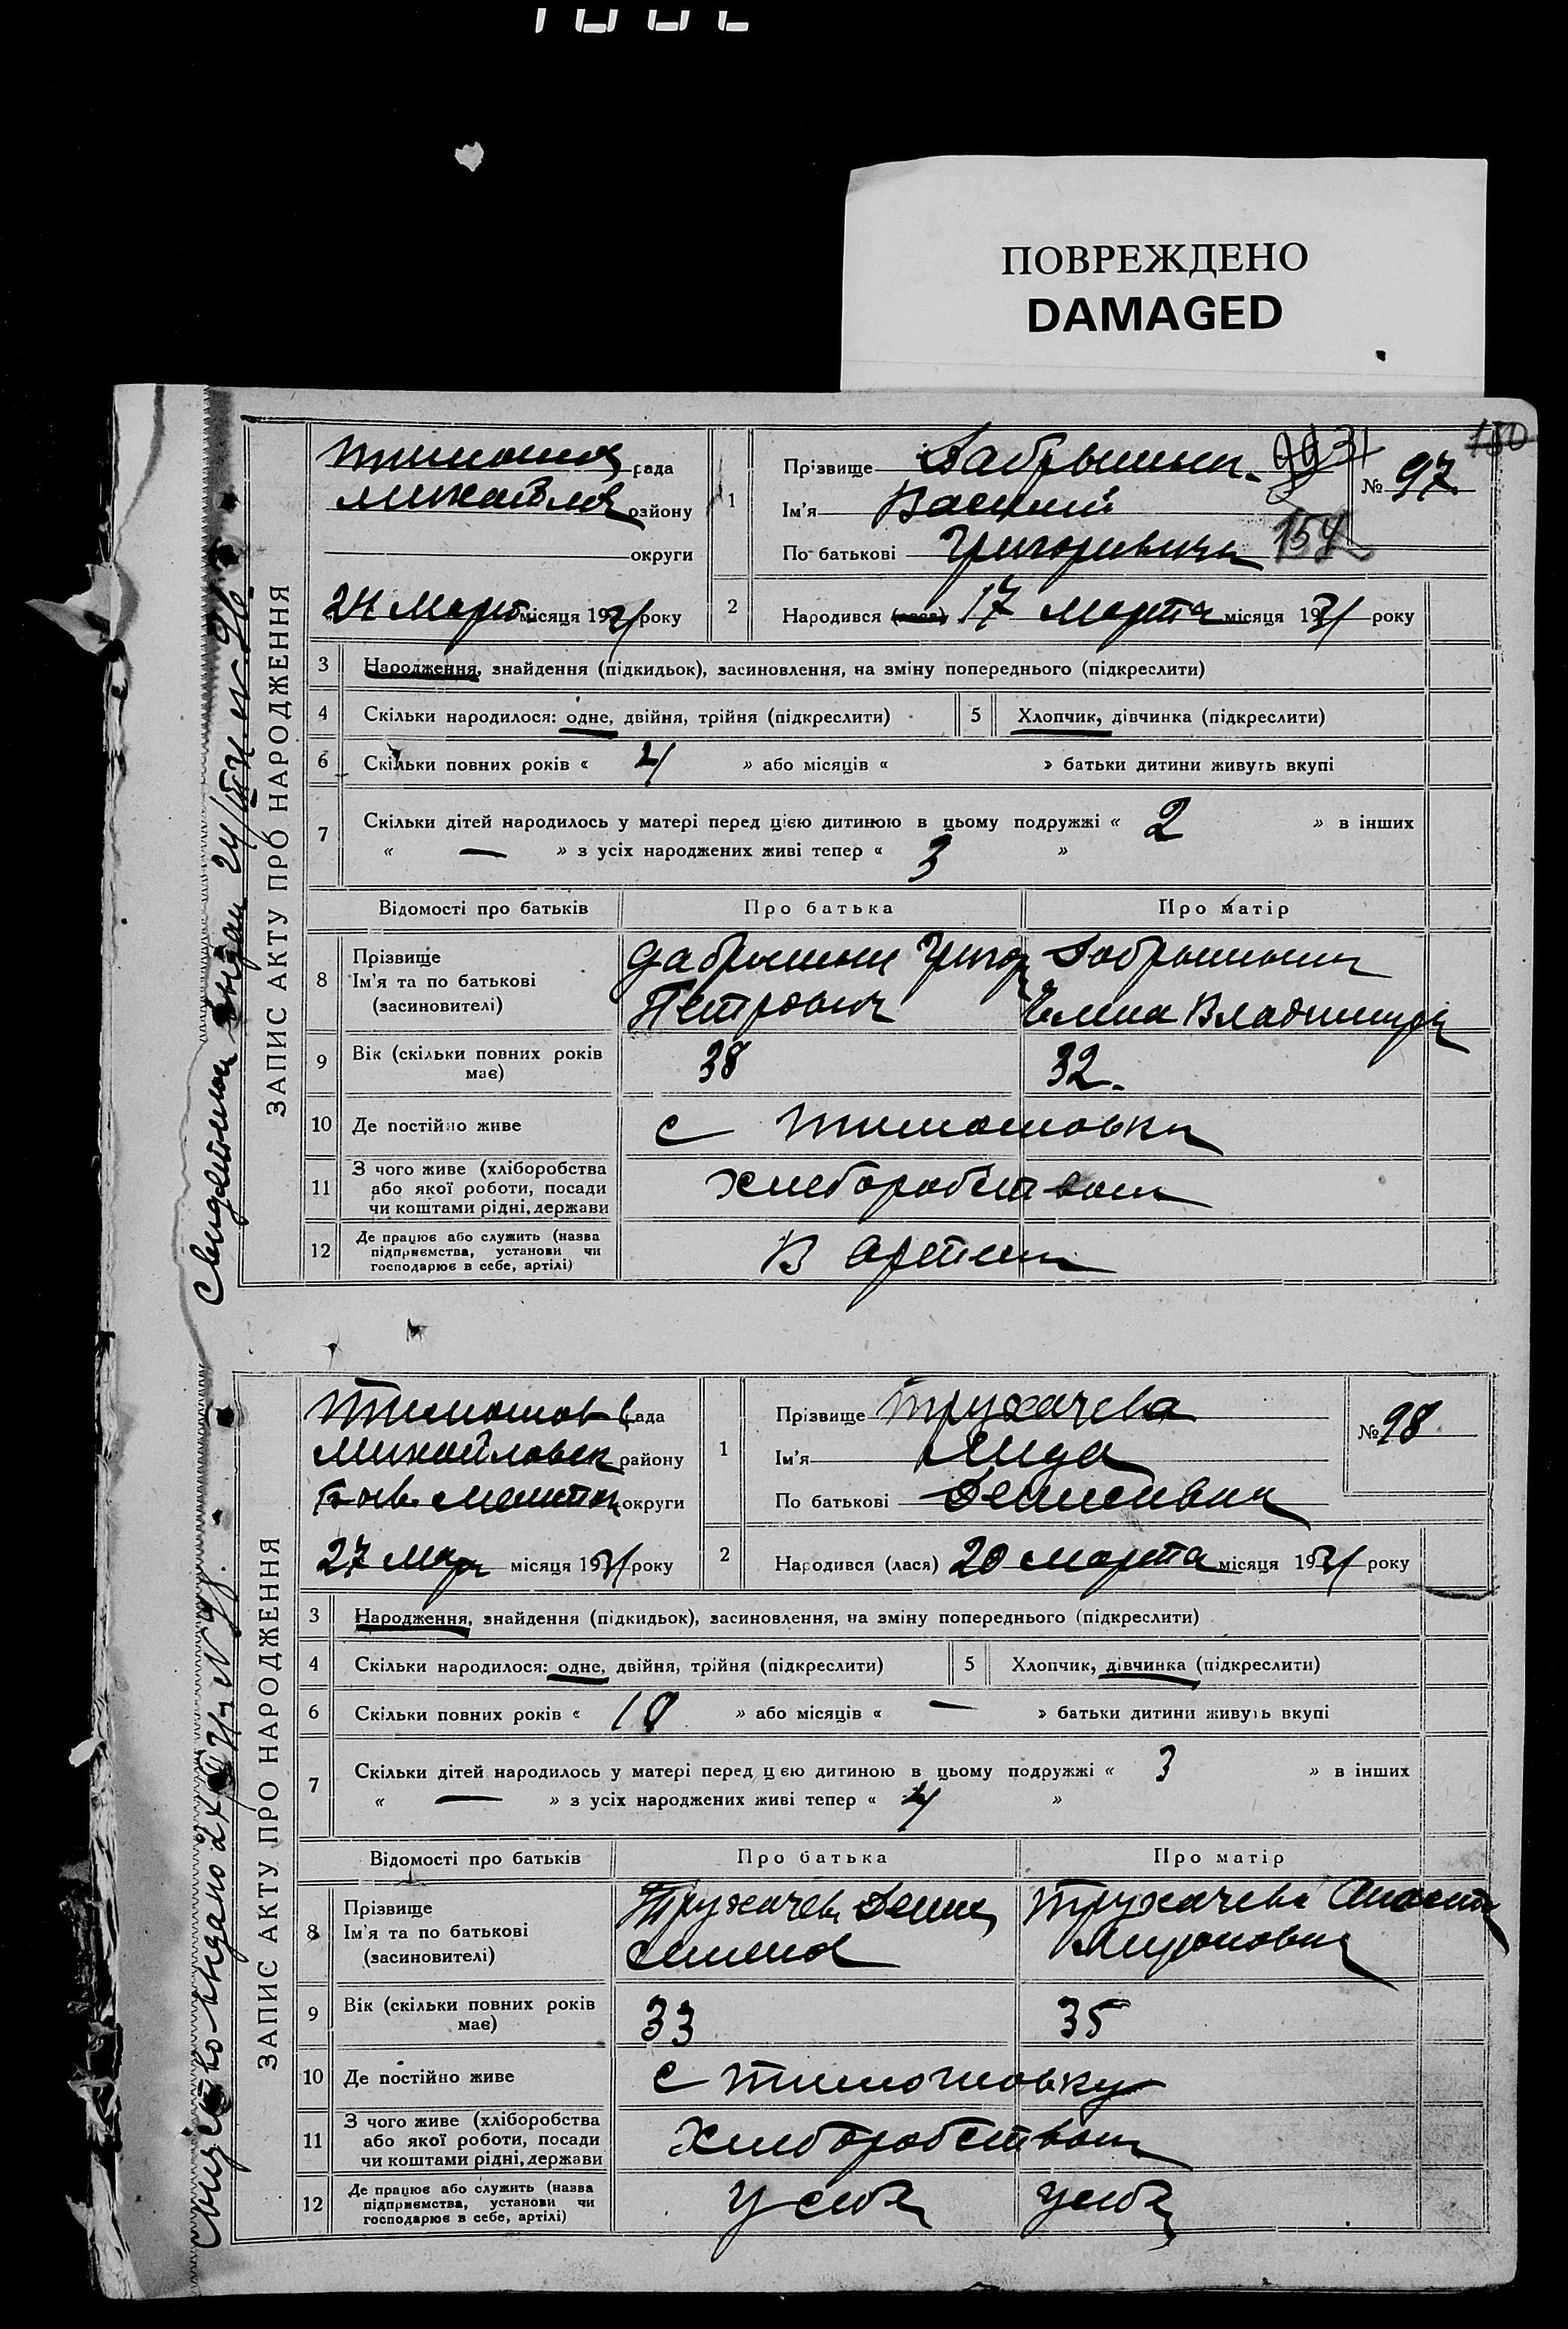 ПОВРЕЖДЕНО
DAMAGED
ЗАПИС АКТУ ПРО НАРОДЖЕННЯ
рада
району
округи
24 Март місяця 1931 року
1
Прізвище
Ім'я Василий
По батькові Григорьевич
154
№ 97
150
2
Народився (лася) 17 Марта місяця 1931 року
3
Народження, знайдення (підкидьок), засиновлення, на зміну попереднього (підкреслити)
4
Скільки народилося: одне, двійня, трійня (підкреслити)
5
Хлопчик, дівчинка (підкреслити)
6
Скільки повних років « 4 » або місяців « » батьки дитини живуть вкупі
7
Скільки дітей народилось у матері перед цією дитиною в цьому подружжі « 2 » в інших
« — » з усіх народжених живі тепер « 3 »
Відомості про батьків
Про батька
Про матір
8
Прізвище
Ім'я та по батькові
(засиновителі)
Григор
Петрович
Елена Владимир
9
Вік (скільки повних років
має)
38
32
10
Де постійно живе
с Тимошовка
11
З чого живе (хліборобства
або якої роботи, посади
чи коштами рідні, держави
хлеборобством
12
Де працює або служить (назва
підприємства, установи чи
господарює в себе, артілі)
В артели
ЗАПИС АКТУ ПРО НАРОДЖЕННЯ
Тимошов рада
Михайловск району
округи
27 Мар місяця 1931 року
1
Прізвище Трухачева
Ім'я Лида
По батькові Денисовна
№ 98
2
Народився (лася) 20 марта місяця 1931 року
3
Народження, знайдення (підкидьок), засиновлення, на зміну попереднього (підкреслити)
4
Скільки народилося: одне, двійня, трійня (підкреслити)
5
Хлопчик, дівчинка (підкреслити)
6
Скільки повних років « 10 » або місяців « — » батьки дитини живуть вкупі
7
Скільки дітей народилось у матері перед цією дитиною в цьому подружжі « 3 » в інших
« — » з усіх народжених живі тепер « 4 »
Відомості про батьків
Про батька
Про матір
8
Прізвище
Ім'я та по батькові
(засиновителі)
Трухачев Денис
Трухачева
Мироновна
9
Вік (скільки повних років
має)
33
35
10
Де постійно живе
с Тимошовку
11
З чого живе (хліборобства
або якої роботи, посади
чи коштами рідні, держави
Хлеборобством
12
Де працює або служить (назва
підприємства, установи чи
господарює в себе, артілі)
У себя
У себя